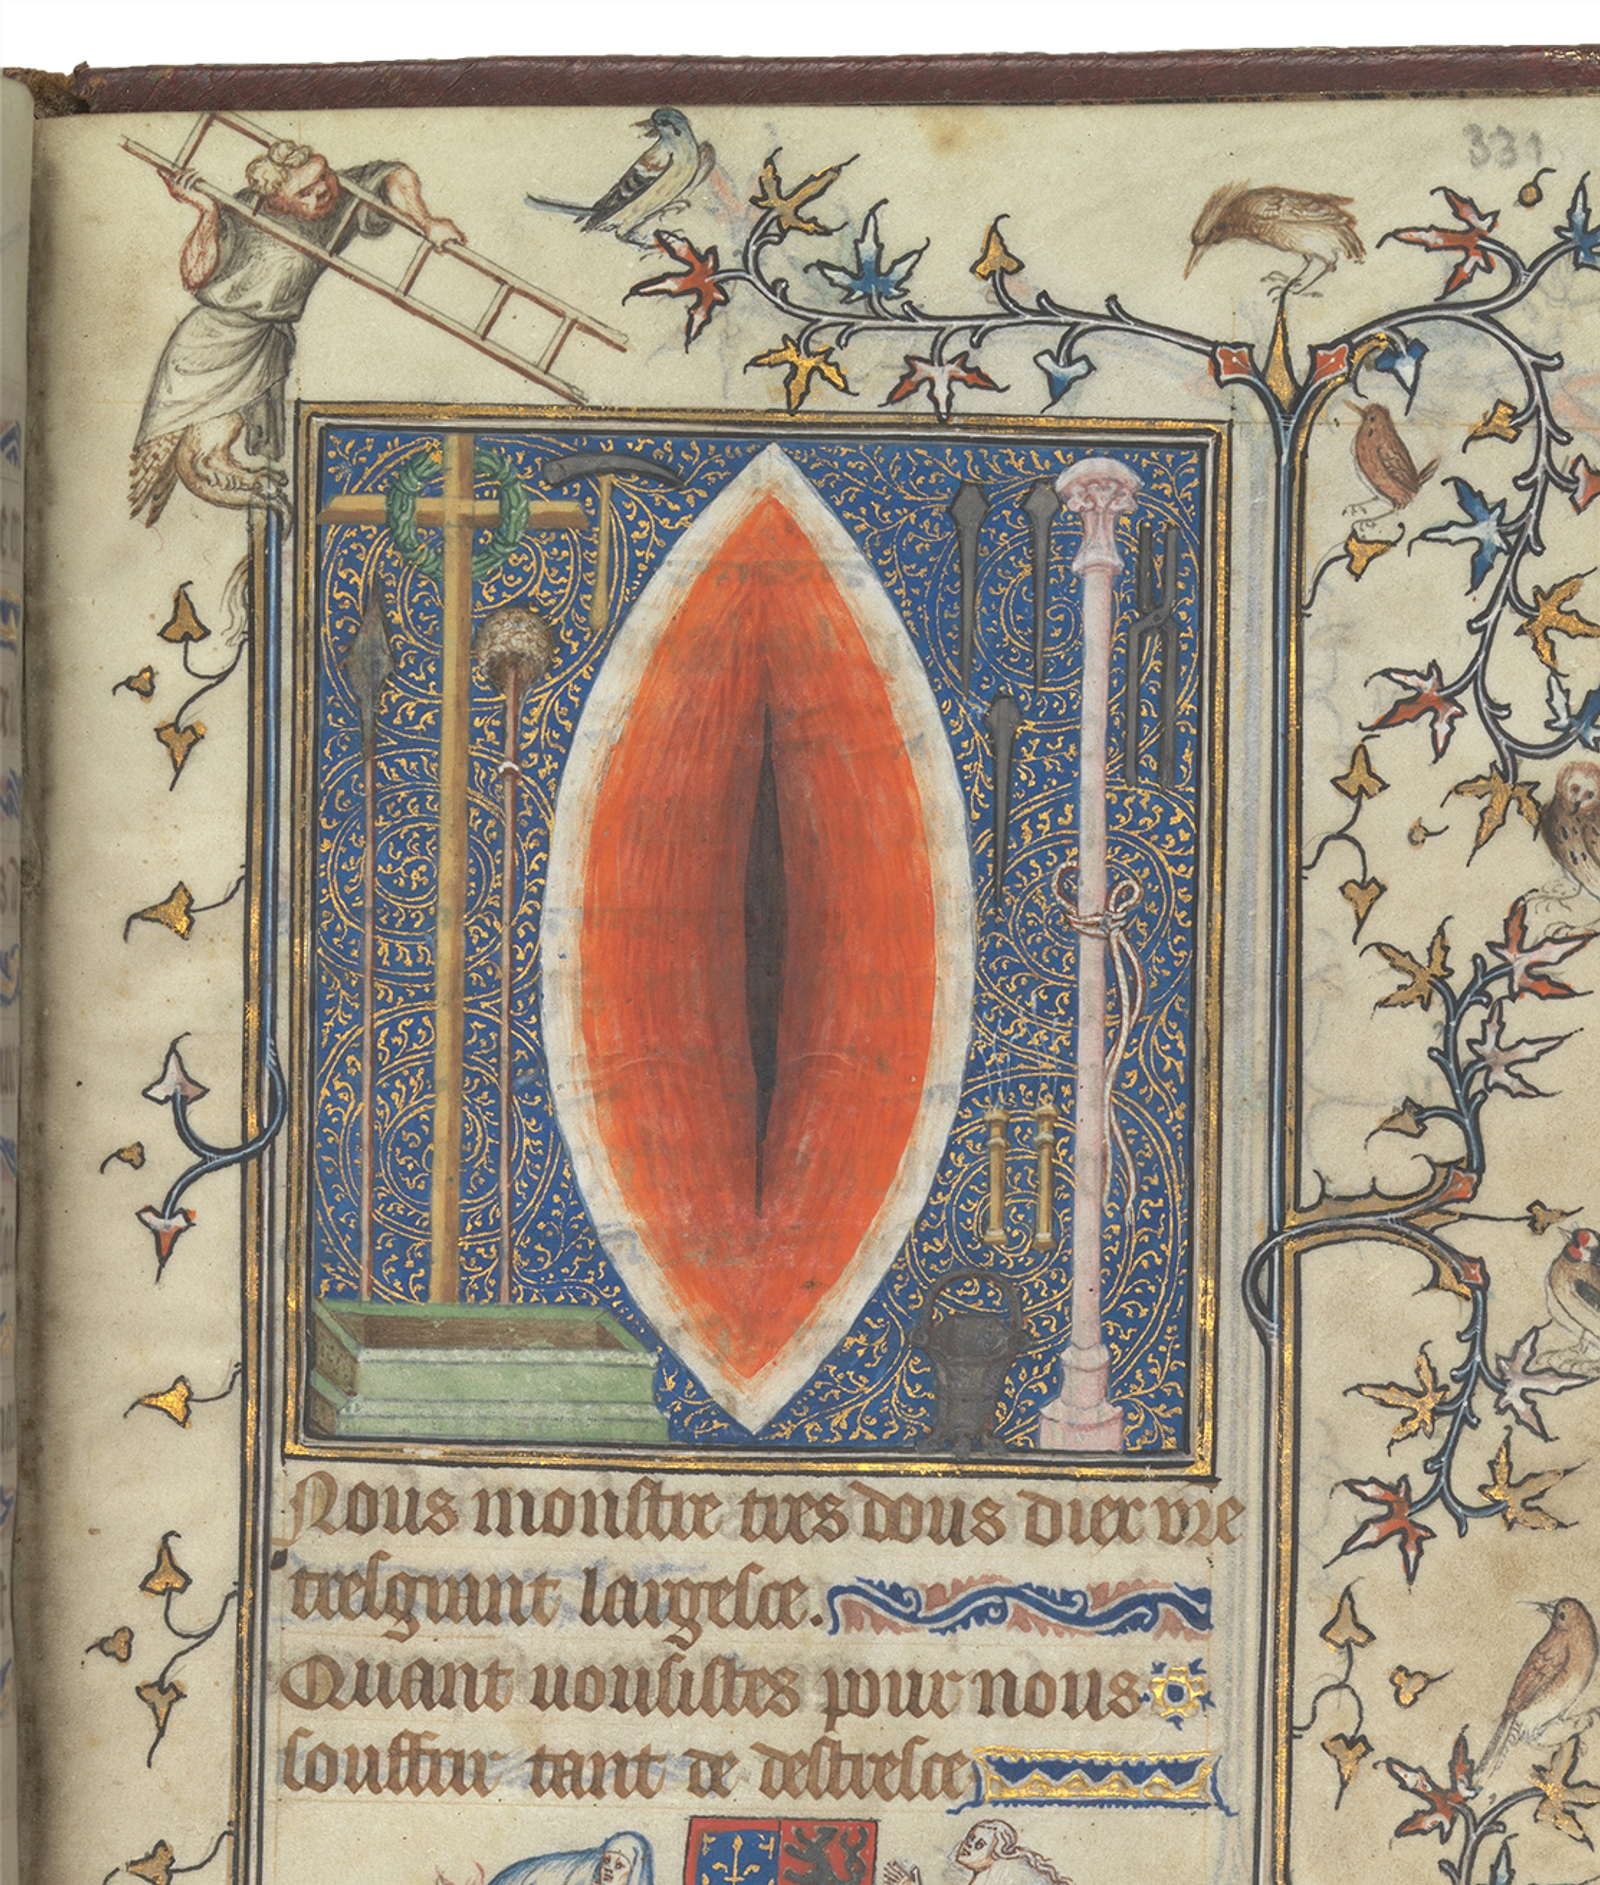 331
Nous monstre tres dous dier vre
tresgrant largesce.
Quant uousistes pour nous
souffrir tant de destresce